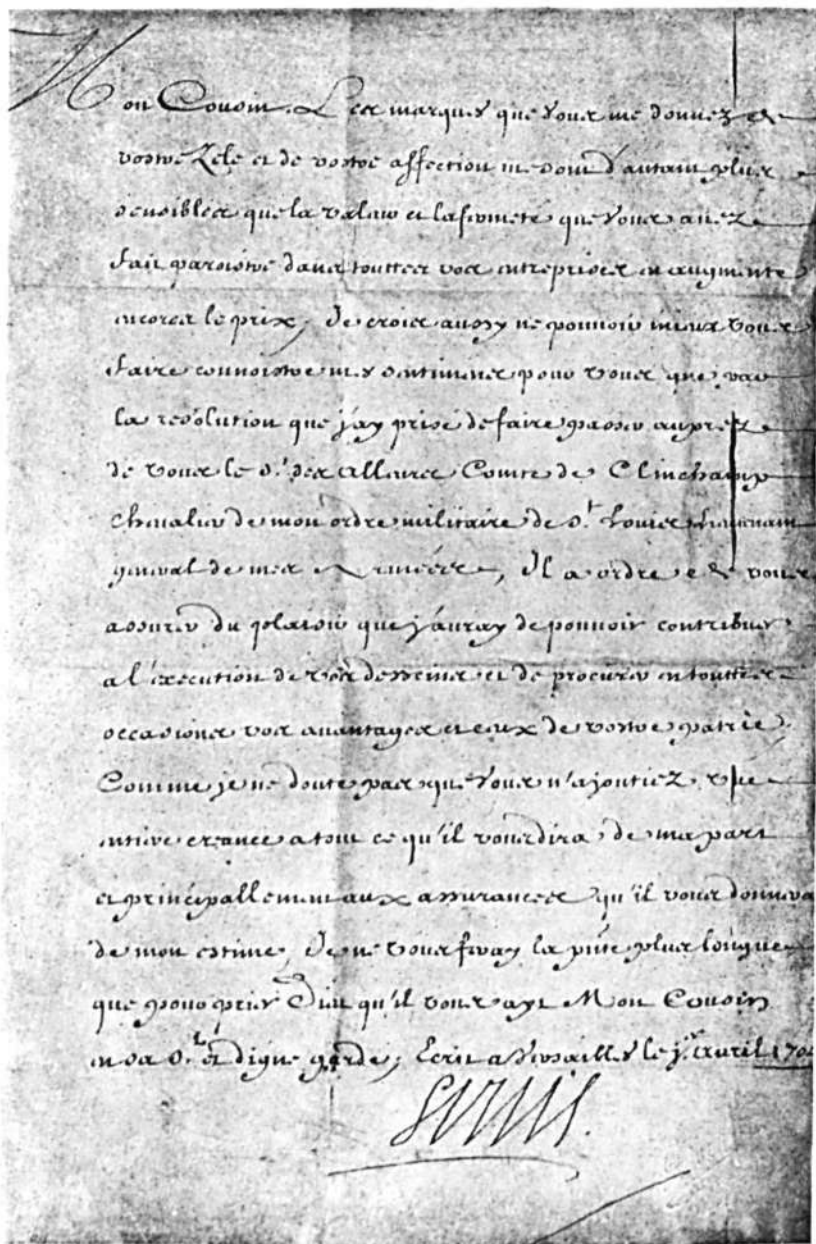 Mon Cousin. Les marques que vous me donnez de
vostre Zele et de vostre affection me sont d'autant plus
sensibles que la valeur et la fermeté que vous avez
fait paroistre dans touttes vos entreprises en augmente
encores le prix, Je crois aussy ne pouvoir mieux vous
faire connoistre mes sentimens pour vous que par
la resolution que j'ay prise de faire passer auprez
de vous le Sr. des Alleurs Comte de Clinchamp
chevalier de mon ordre militaire de St. Louis Lieutenant
general de mes Armées, Il a ordre de vous
assurer du plaisir que j'auray de pouvoir contribuer
a l'execution de vos desseins et de procurer en touttes
occasions vos avantages et ceux de vostre patrie.
Comme je ne doute pas que vous n'ajoutiez une
entiere creance a tout ce qu'il vous dira de ma part
et principallement aux assurances qu'il vous donnera
de mon estime, Je ne vous feray la pnte plus longue
que pour prier Dieu qu'il vous ayt Mon Cousin
en sa Ste. et digne garde, Ecrit a Versailles le avril
Louis.